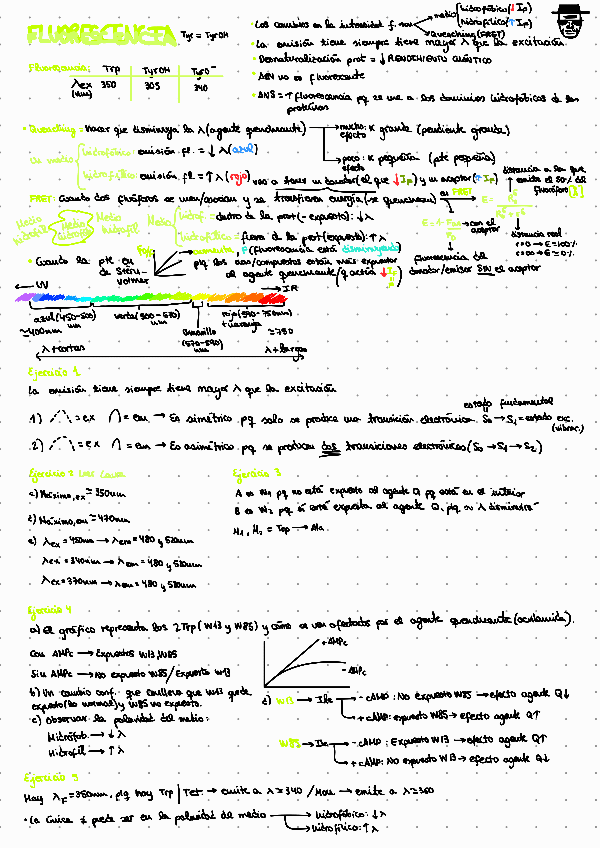 FLUORESCENCIA Tyr = TyrOH
Fluorescencia: Trp TyrOH TyrO⁻
λex (nm) 350 305 340
• Los cambios en la intensidad f. son medio hidrofóbico/↓ IF
hidrofílico/↑ IF
quenching (FRET)
• La emisión tiene siempre tiene mayor λ que la excitación.
• Desnaturalización prot = ↓ RENDIMIENTO CUÁNTICO
• ADN no es fluorescente
• ANS = ↑ fluorescencia pq se une a los dominios hidrofóbicos de las
proteínas
• Quenching = hacer que disminuya la λ (agente quenchante) mucho: K grande (pendiente grande)
efecto
poco: K pequeña (pte pequeña)
efecto
Un medio hidrofóbico: emisión fl. = ↓ λ (azul)
hidrofílico: emisión fl. = ↑ λ (rojo)
vao a tener un donador (el que ↓ IF) y un aceptor (↑ IF)
distancia a la que
emite el 50% del
fluoróforo
FRET: Cuando dos fluóforos se unen/asocian y se transfieren energía (se quenchean)
en FRET
E =
Medio hidrófil Medio hidrófób Medio hidrófil
Medio hidrof = dentro de la prot (- expuesto): ↓ λ
hidrofílico: fuera de la prot (expuesto): ↑ λ
con el aceptor
distancia real
r=0 → E=100%
r=∞ → E=0%
• Cuando la pte en
de Stern-
volmer
aumenta, F (fluorescencia está disminuyendo)
pq los aas/compuestos están más expuestos
al agente quenchante (q actúa ↓ IF)
fluorescencia del
donador/emisor SIN el aceptor
← UV → IR
azul (450-500) nm verde (500-570) nm amarillo (570-590) nm rojo (590-750nm) + naranja
≃400nm ≃750
λ + cortas λ + largas
Ejercicio 1
La emisión tiene siempre tiene mayor λ que la excitación
1) = ex = em → Es simétrico pq solo se produce una transición electrónica. S₀ → S₁ = estado exc. (vibrac.)
estado fundamental
2) = ex = em → Es asimétrico pq se producen dos transiciones electrónicas (S₀ → S₁ → S₂)
Ejercicio 2
c) Máximo, ex ≃ 350nm
d) Máximo, em ≃ 470nm
e) λex = 450nm → λem = 480 y 520nm
λex = 340nm → λem = 480 y 520nm
λex = 370nm → λem = 480 y 520nm
Ejercicio 3
A es M₁ pq no está expuesto al agente Q pq está en el interior
B es M₂ pq sí está expuesta al agente Q, pq su λ disminuye
M₁, M₂ = Trp → Ala
Ejercicio 4
a) El gráfico representa los 2Trp (W13 y W85) y cómo se ven afectados por el agente quenchante (acrilamida).
Con AMPc → Expuestos W13, W85
Sin AMPc → No expuesto W85 / Expuesto W13
b) Un cambio conf. que conlleva que W13 quede
expuesto (lo normal) y W85 no expuesto.
c) Observar la polaridad del medio:
Hidrófob → ↓ λ
Hidrófil → ↑ λ
+AMPc
-AMPc
d) W13 → Ile - cAMP: No expuesto W85 → efecto agente Q↓
+ cAMP: expuesto W85 → efecto agente Q↑
W85 → Ile - cAMP: Expuesto W13 → efecto agente Q↑
+ cAMP: No expuesto W13 → efecto agente Q↓
Ejercicio 5
Hay λF = 350nm, pq hay Trp | Tet → emite a λ ≃ 340 / Mon → emite a λ ≃ 360
• La única ≠ puede ser en la polaridad del medio Hidrofóbico: ↓ λ
Hidrofílico: ↑ λ